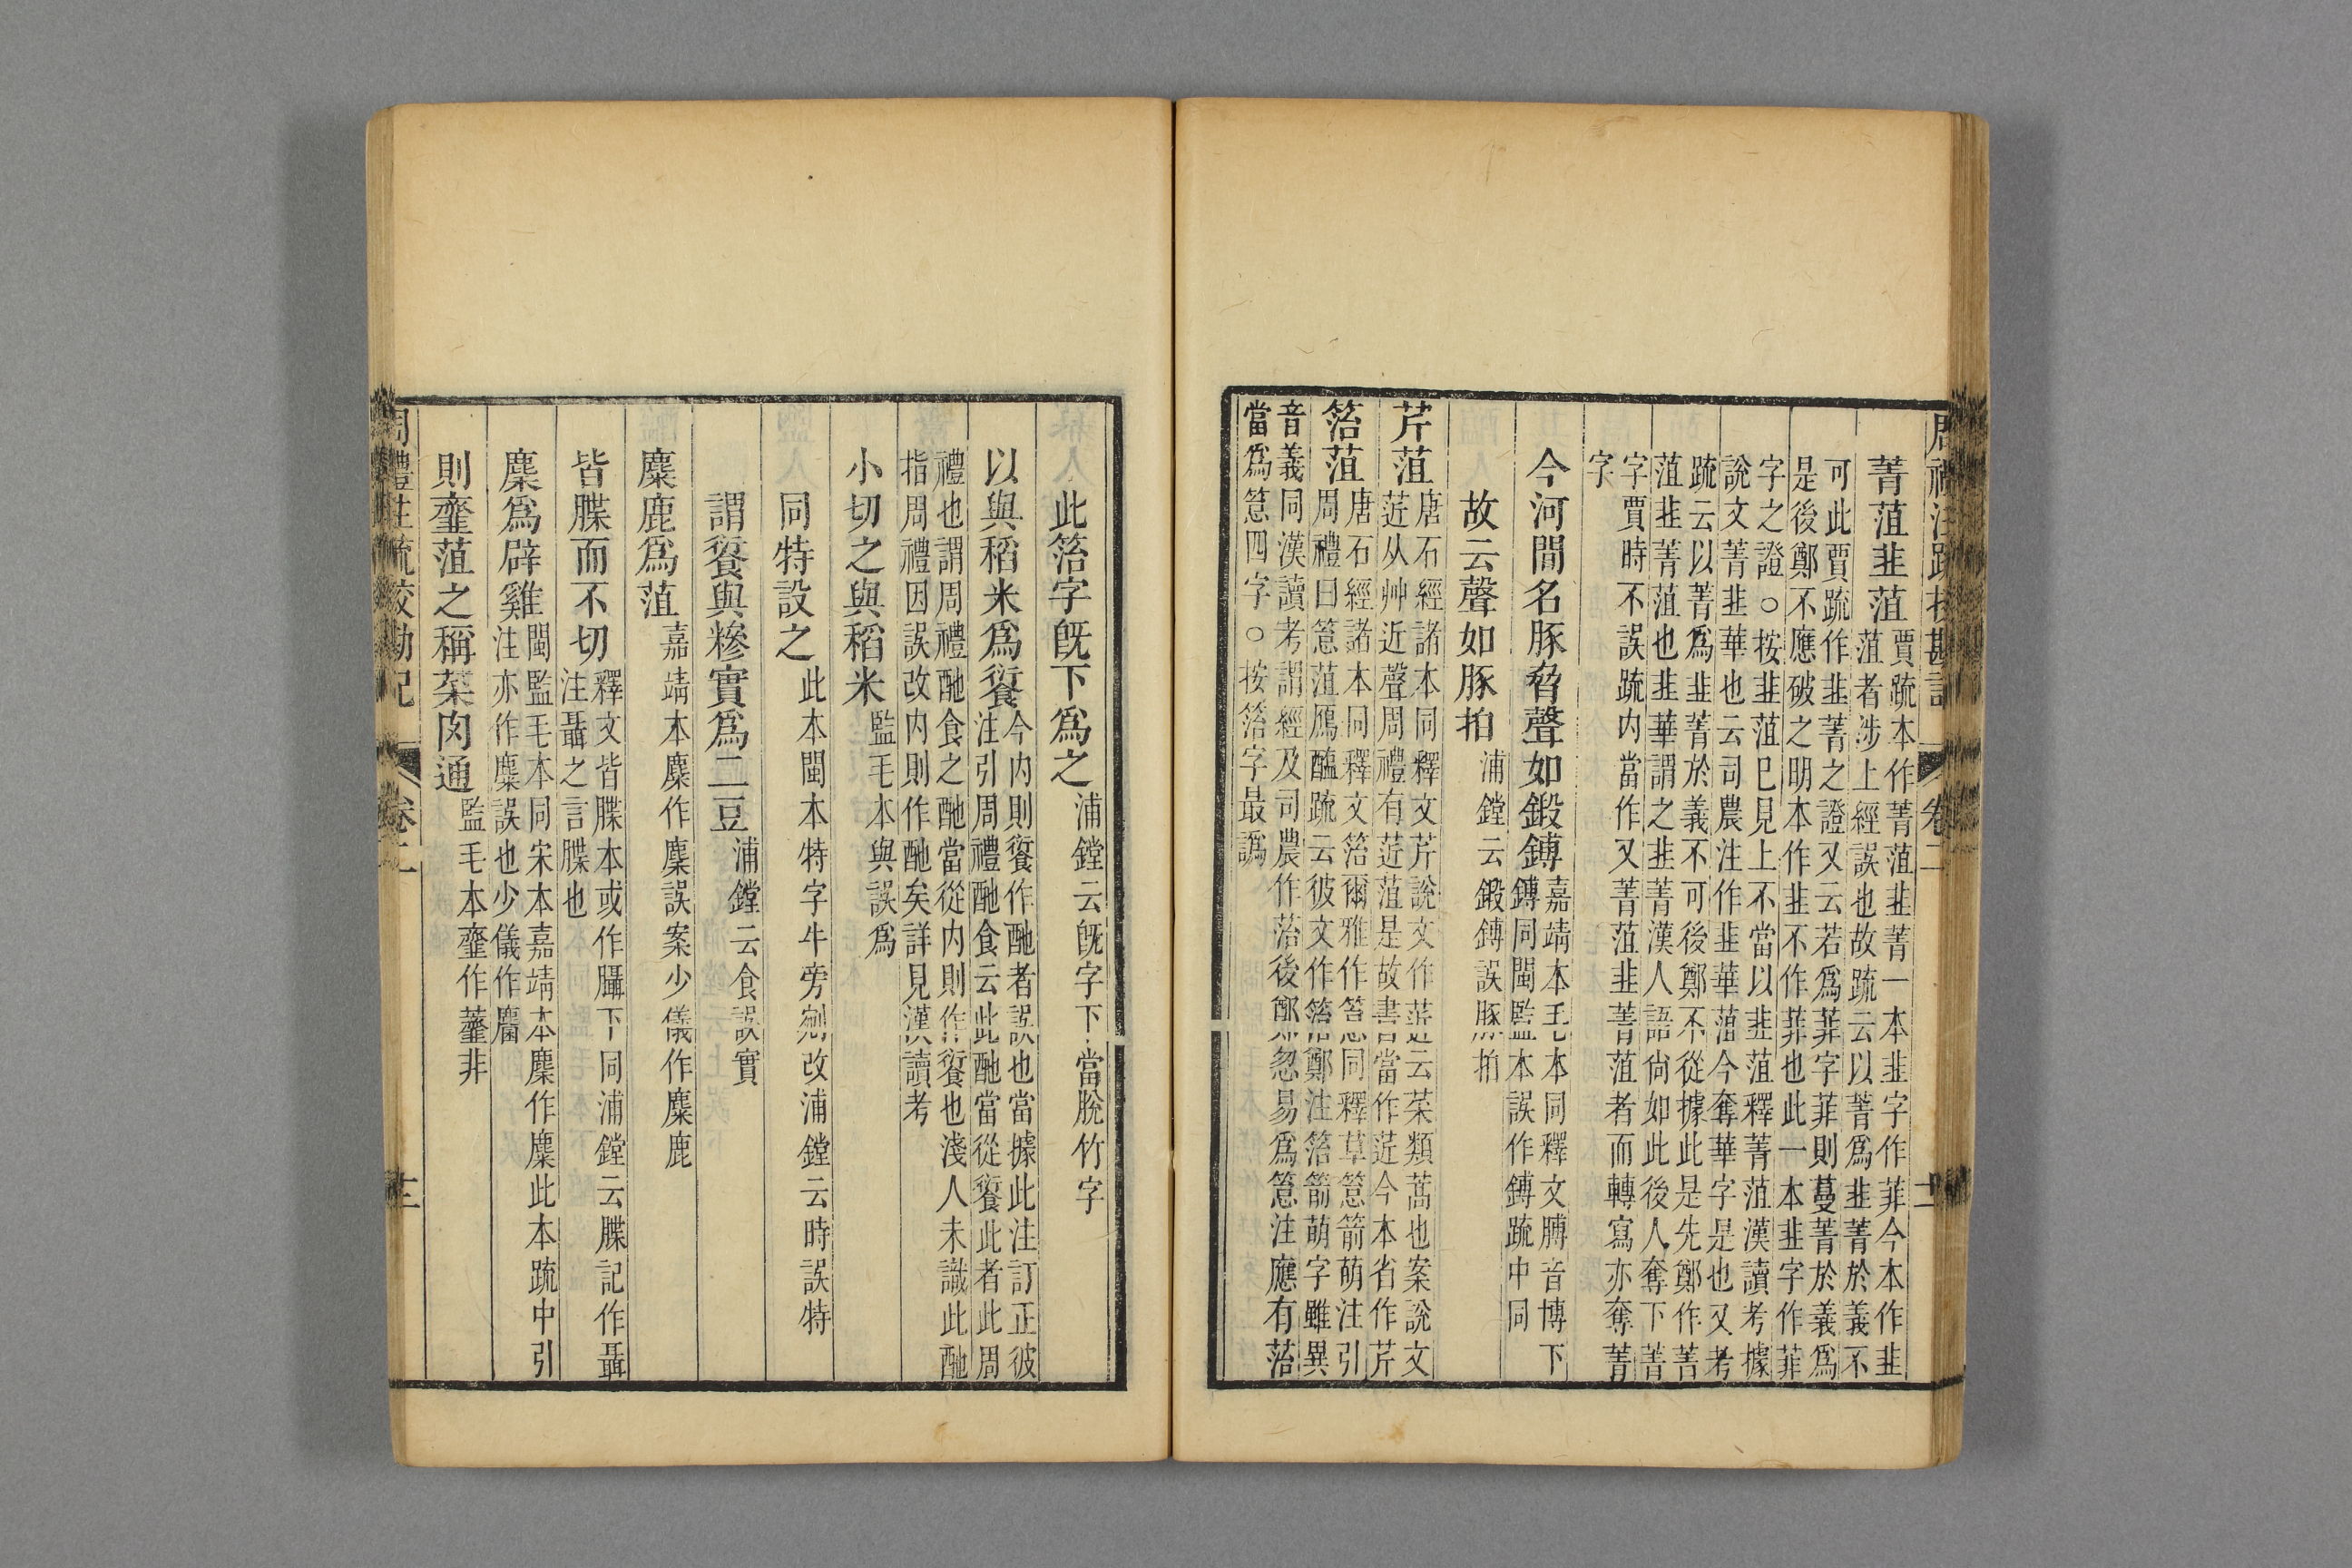 菁菹韭菹賈疏本作菁菹韭菁一本韭字作菲今本作韭
菹者涉上經誤也故疏云以菁爲韭菁於義不
可此賈疏作韭菁之證又云若爲菲字菲則蔓菁於義爲
是後鄭不應破之明本作韭不作菲也此一本韭字作菲
字之證○按韭菹已見上不當以韭菹釋菁菹漢讀考據
說文菁韭華也云司農注作韭華菹今奪華字是也又考
疏云以菁爲韭菁於義不可後鄭不從據此是先鄭作菁
菹韭菁菹也韭華謂之韭菁漢人語尙如此後人奪下菁
字賈時不誤疏内當作又菁菹韭菁菹者而轉寫亦奪菁
字
今河間名豚脅聲如鍛鎛嘉靖本毛本同釋文膊音博下
鎛同閩監本誤作鎛疏中同
故云聲如豚拍浦鏜云鍛鎛誤豚拍
芹菹唐石經諸本同釋文芹說文作菦云菜類蒿也案說文
菦从艸近聲周禮有菦菹是故書當作菦今本省作芹
箈菹唐石經諸本同釋文箈爾雅作䈚同釋草䈚箭萌注引
周禮曰䈚菹鴈醢疏云彼文作箈鄭注箈箭萌字雖異
音義同漢讀考謂經及司農作菭後鄭忽易爲䈚注應有菭
當爲䈚四字○按箈字最譌
此箈字旣下爲之浦鏜云旣字下當脫竹字
以與稻米爲餈今内則餈作酏者誤也當據此注訂正彼
注引周禮酏食云此酏當從餈此者此周
禮也謂周禮酏食之酏當從内則作餈也淺人未識此酏
指周禮因誤改内則作酏矣詳見漢讀考
小切之與稻米監毛本與誤爲
同特設之此本閩本特字牛旁剜改浦鏜云時誤特
謂餈與糝實爲二豆浦鏜云食誤實
麋鹿爲菹嘉靖本麋作麇誤案少儀作麋鹿
皆䐑而不切釋文皆䐑本或作牒下同浦鏜云䐑記作聶
注聶之言䐑也
麇爲辟雞閩監毛本同宋本嘉靖本麇作麋此本疏中引
注亦作麋誤也少儀作麕
則齏菹之稱菜肉通監毛本齏作虀非